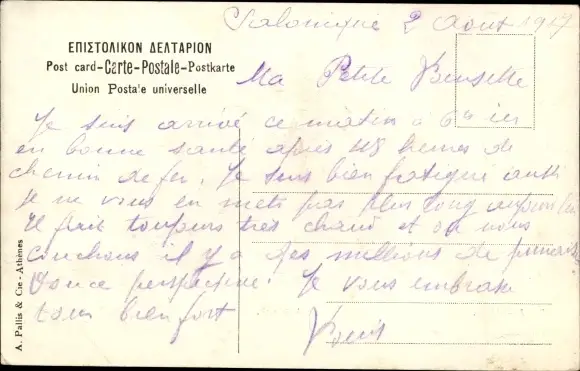 Salonique 2 Aout 1917
ΕΠΙΣΤΟΛΙΚΟΝ ΔΕΛΤΑΡΙΟΝ
Post card-Carte-Postale-Postkarte
Union Posta'e universelle
Ma Petite
Je suis arrivé ce matin à 6
en bonne santé après 48 heures de
chemin de fer. Je suis bien fatigué aussi
je ne vous en mets pas plus long
Il fait toujours très chaud et où nous
couchons il y a des millions de
Douce perspective. Je vous embrasse
tous bien fort
A. Pallis & Cie - Athènes